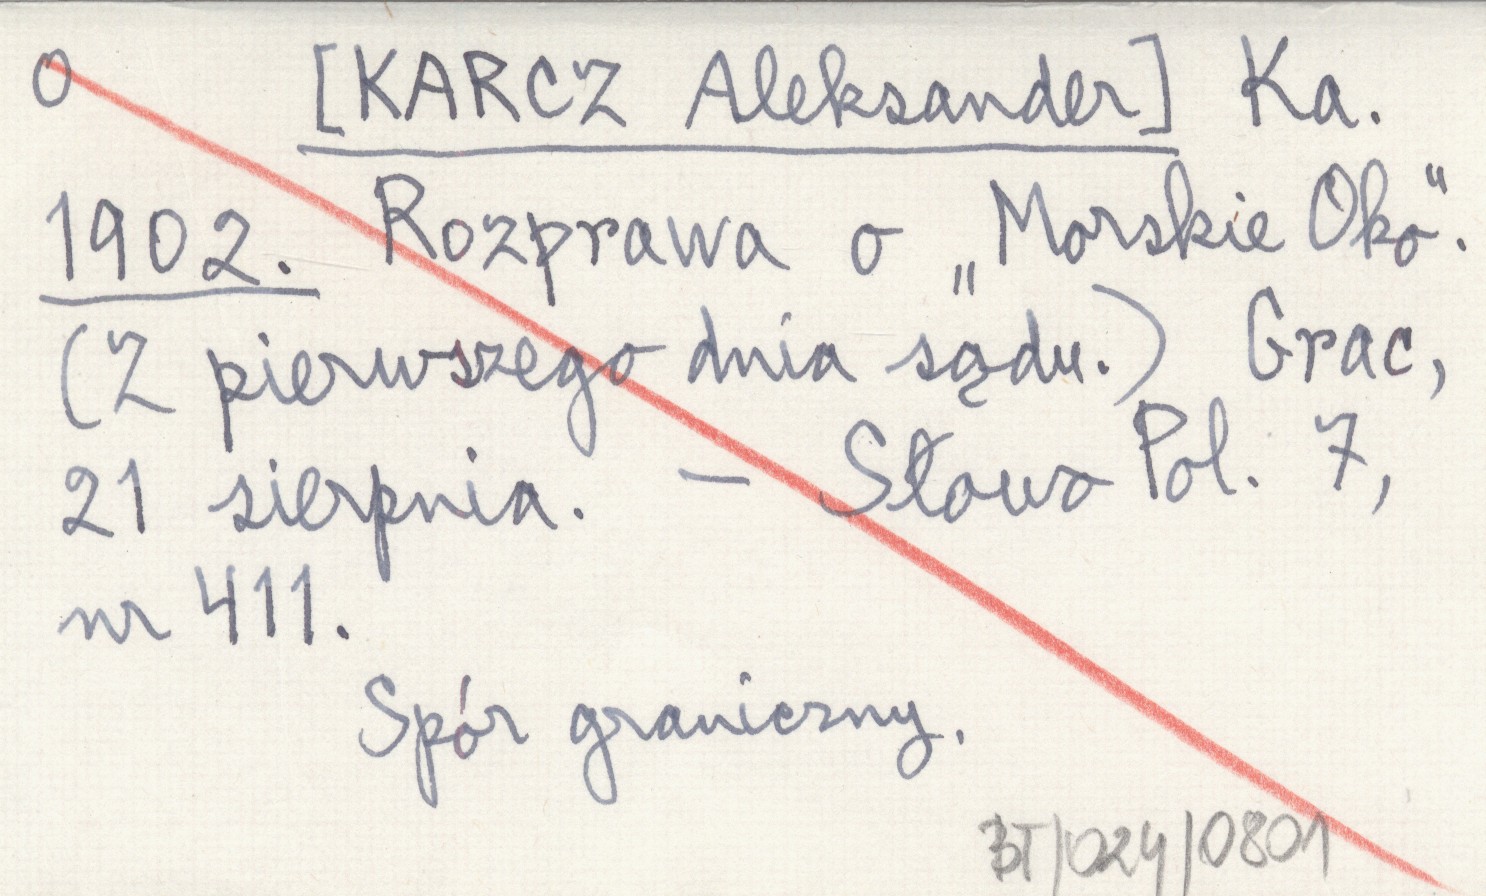 O [KARCZ Aleksander] Ka.
1902. Rozprawa o „Morskie Oko“.
(Z pierwszego dnia sądu.) Grac,
21 sierpnia. — Słowo Pol. 7,
nr 411.
Spór graniczny.
BT/024/0801